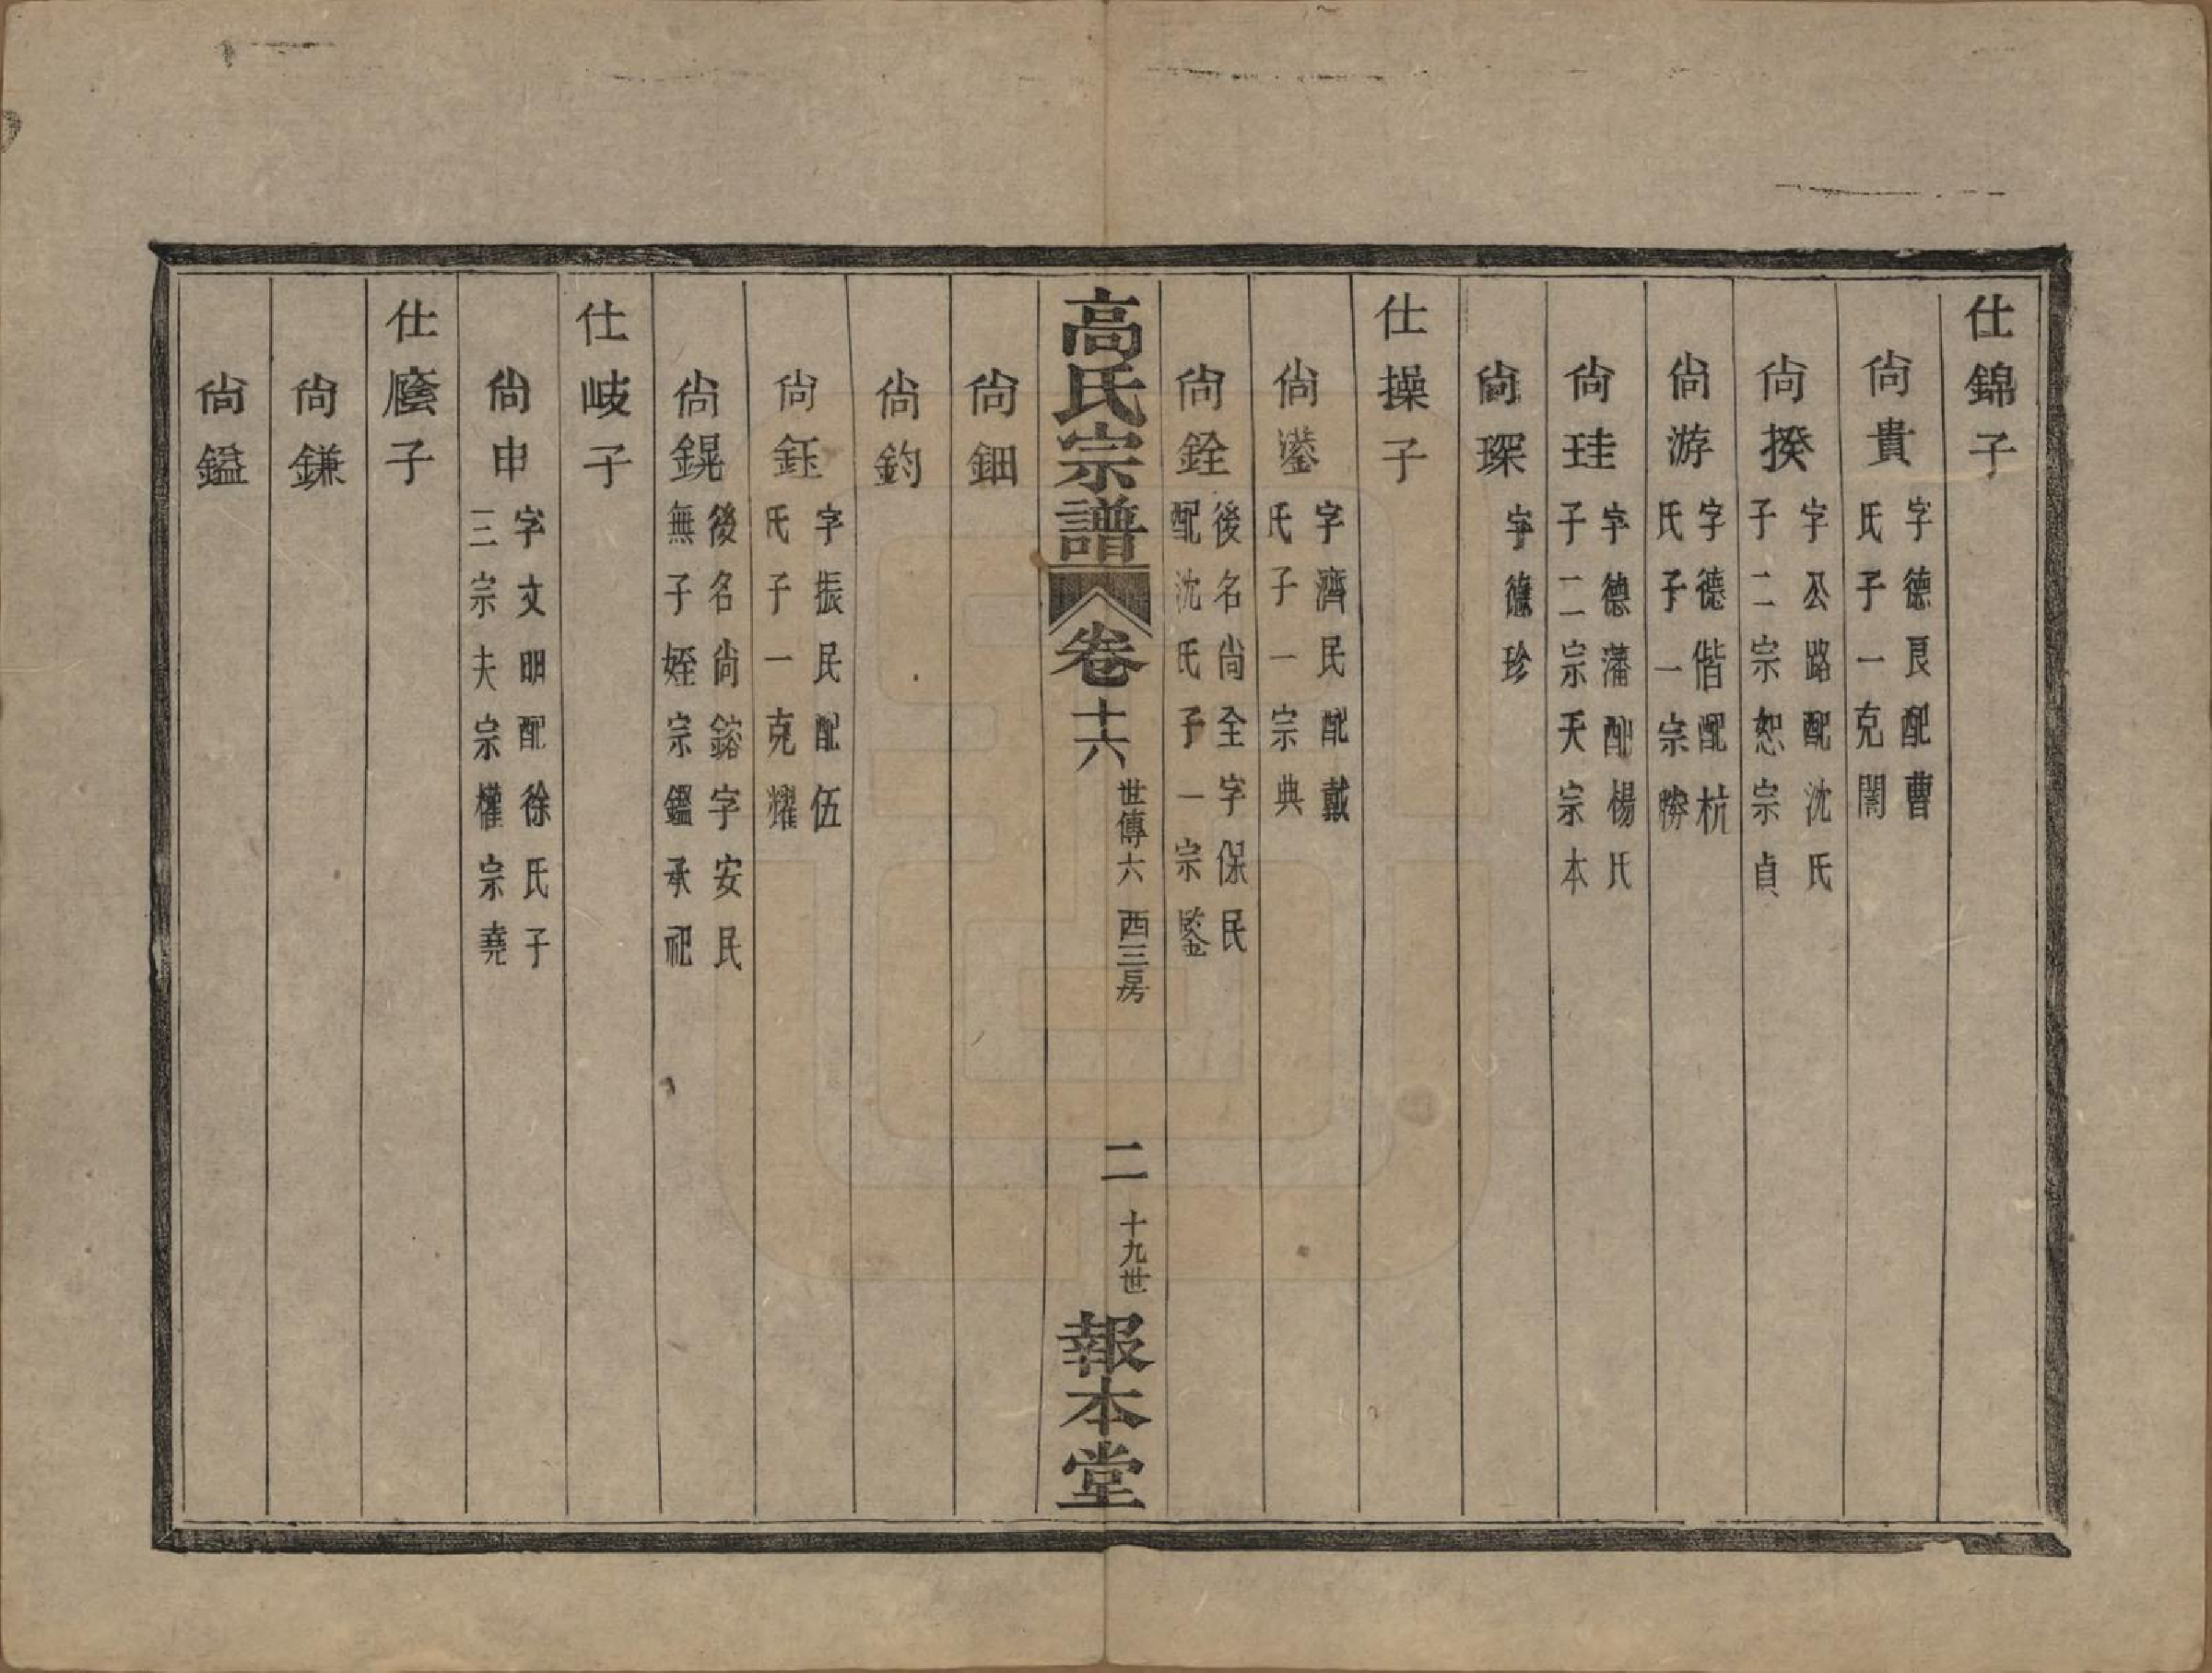 仕錦子
尚貴 字德良配曹
氏子一克誾
尚揆 字公路配沈氏
子二宗恕宗貞
尚游 字德偕配杭
氏子一宗勝
尚珪 字德藩配楊氏
子二宗天宗本
尚琛 字珍
仕操子
尚鎏 字濟民配戴
氏子一宗典
尚銓 後名尚全字保民
配沈氏子一宗鑒
高氏宗譜 卷十六 世傳六 西三房 二 十九世 報本堂
尚鈿
尚鈞
尚鈺 字振民配伍
氏子一克耀
尚鎤 後名尚鎔字安民
無子姪宗鑑承祀
仕岐子
尚申 字文明配徐氏子
三宗夫宗權宗堯
仕廕子
尚鎌
尚鎰